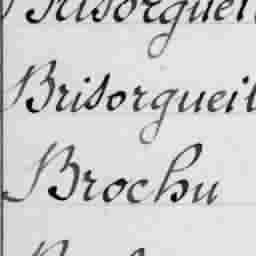 Brisorgueil
Brisorgueil
Brochu